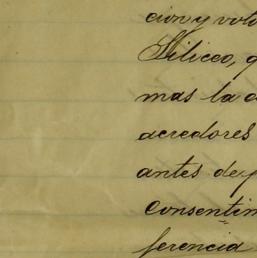 cion y volu
Siliceo, q
mas la a
acredores
antes de p
consentim
ferencia